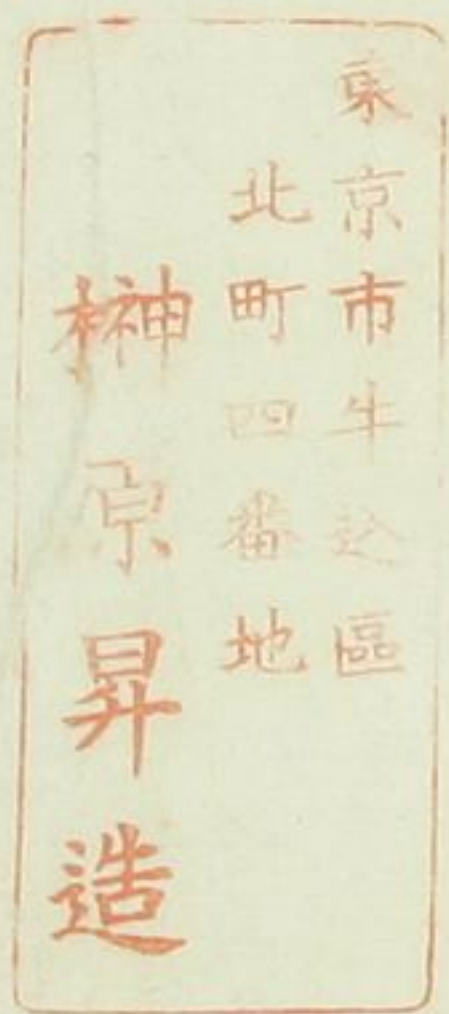 東京市牛込區
北町四番地
榊原昇造